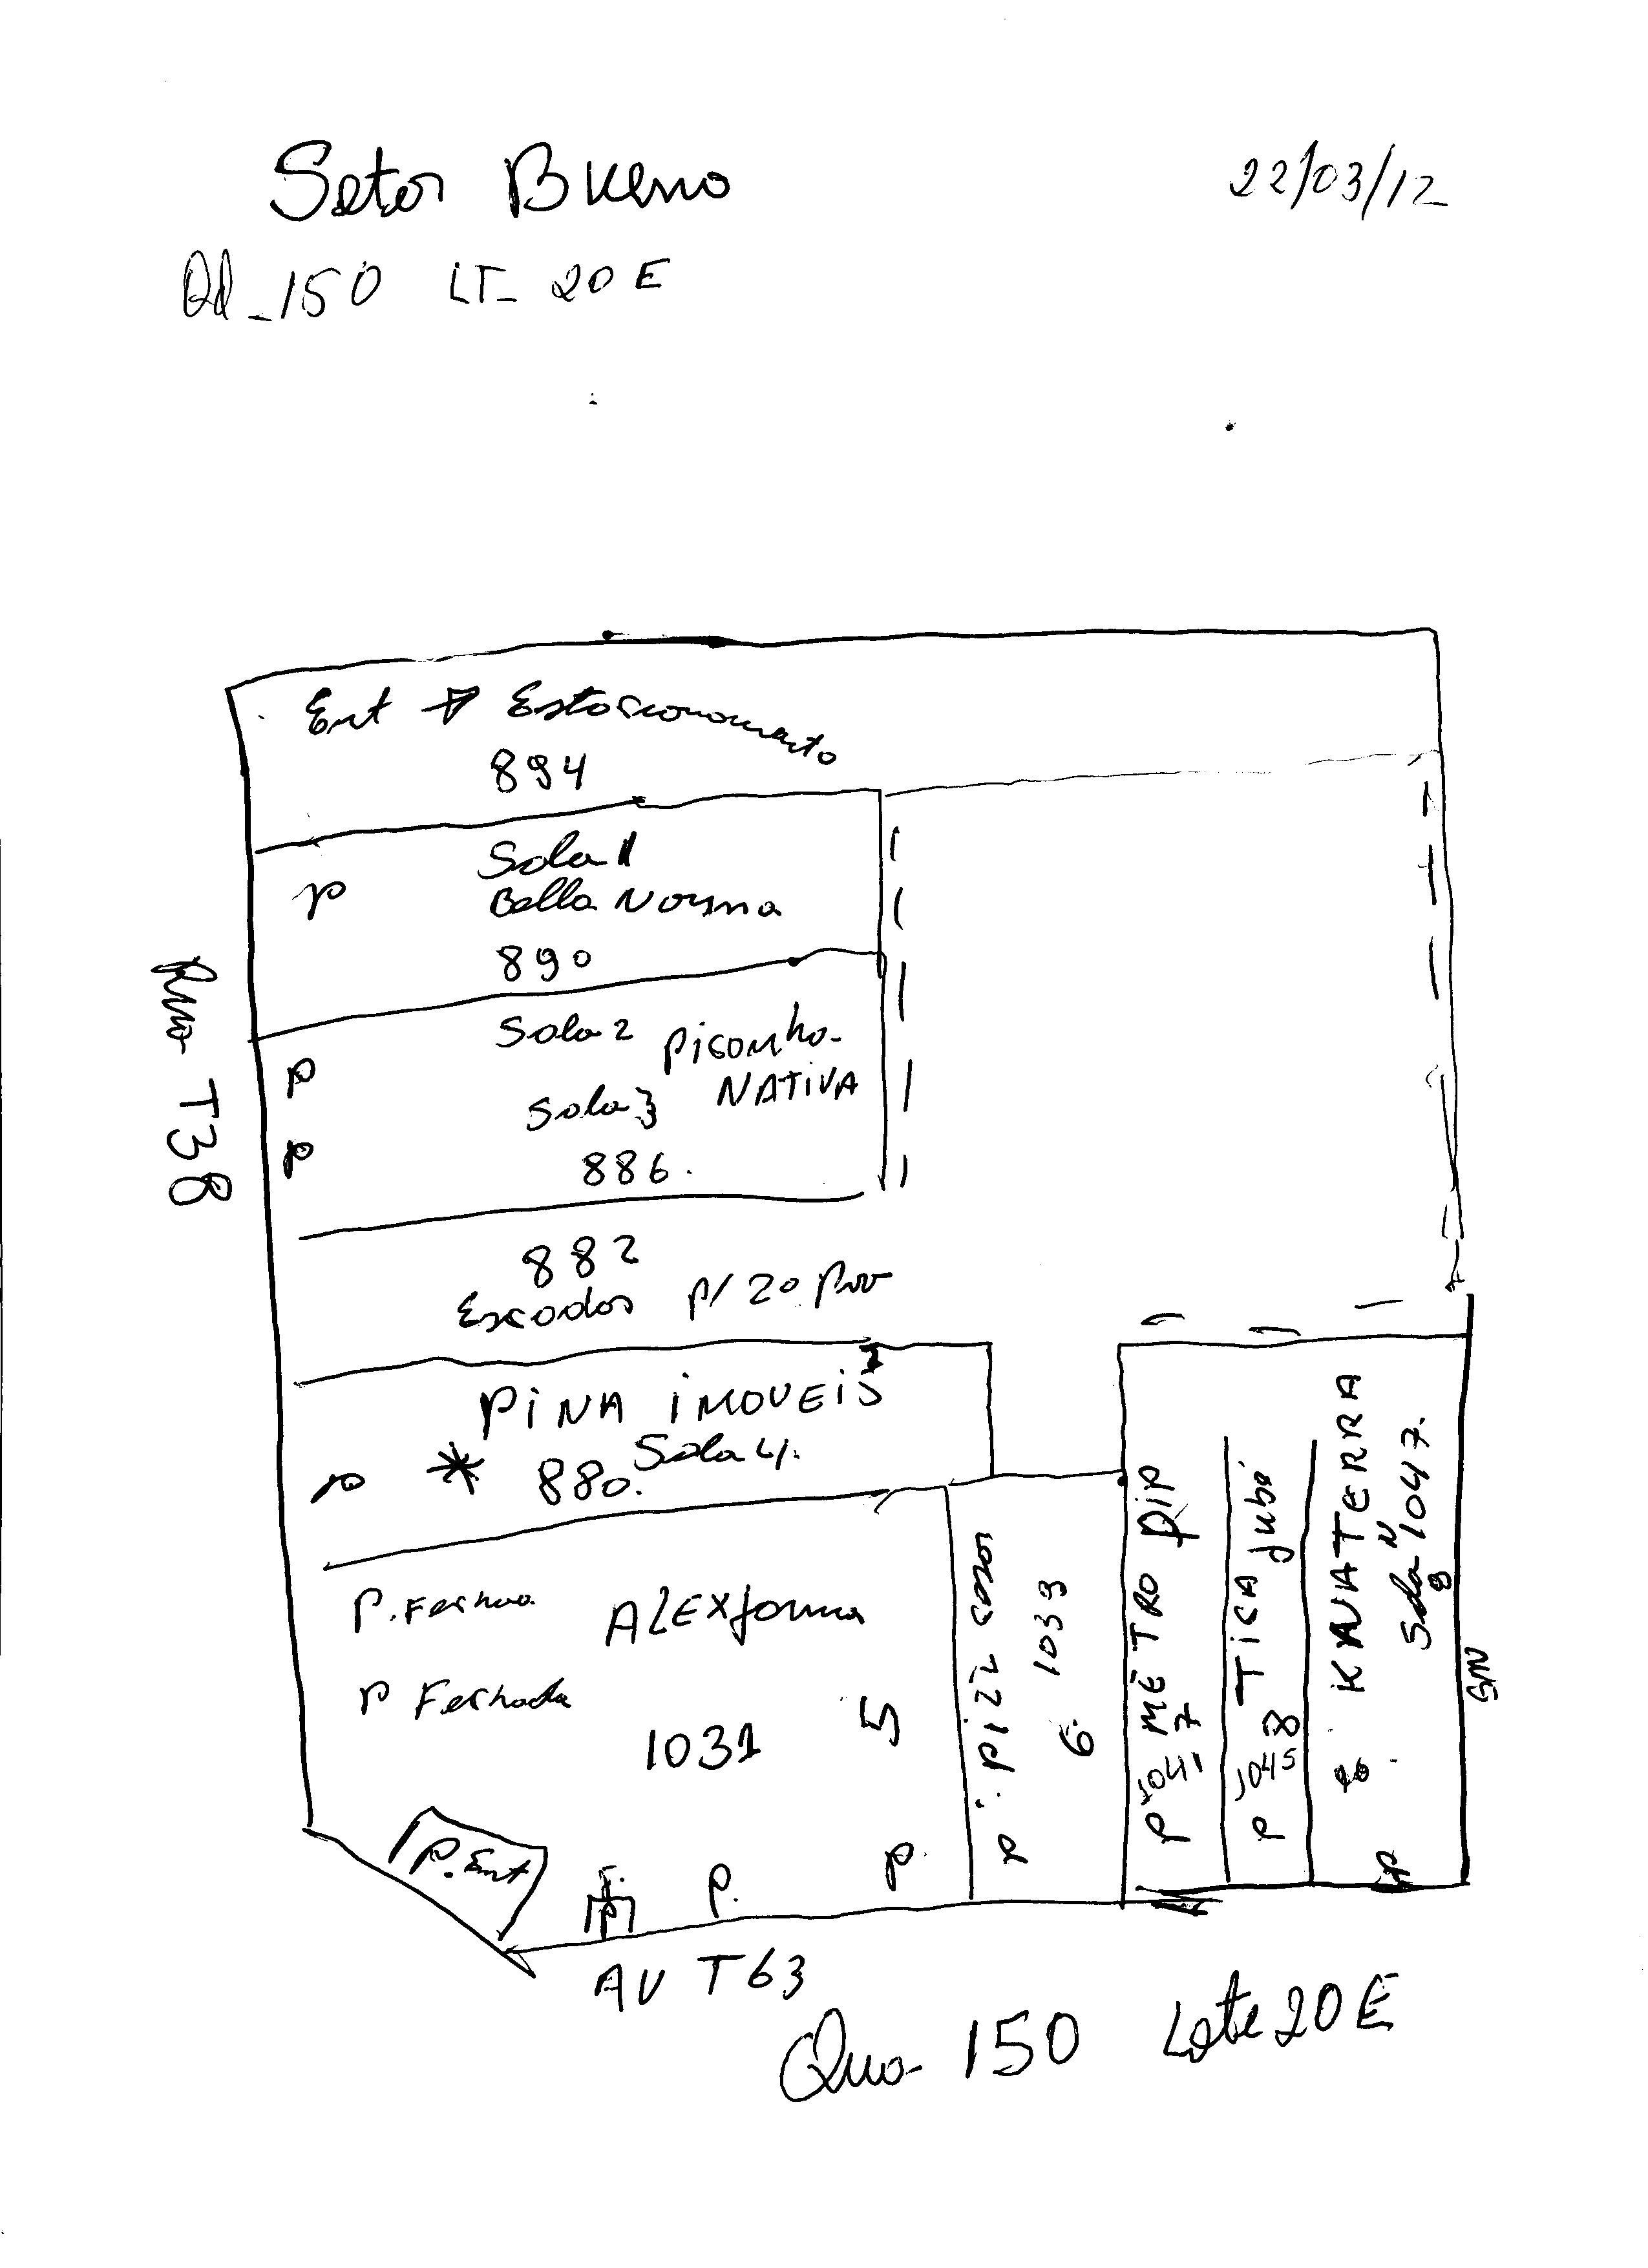 Setor Bueno
22/03/12
Qd_150 LT_ 20 E
Ent → Estacionamento
894
Sala 1
p Bella Norma
890
Sala 2 Picanha
p NATIVA
Sala 3
p 886.
882
Escadas p/ 2o Pav
PINA iMOVEIS
p * 880. Sala 4.
Rua T38
P. Fechada ALEXforma
P Fechada
1031 5
P. Ent
P. P. P.
P PIZZ
1039
6
P MÉTRO
1041 7
P TICA
1045 8
P KNATERRA
Sala Nº 1047.
9
AV T63
Qua 150 Lote 20 E